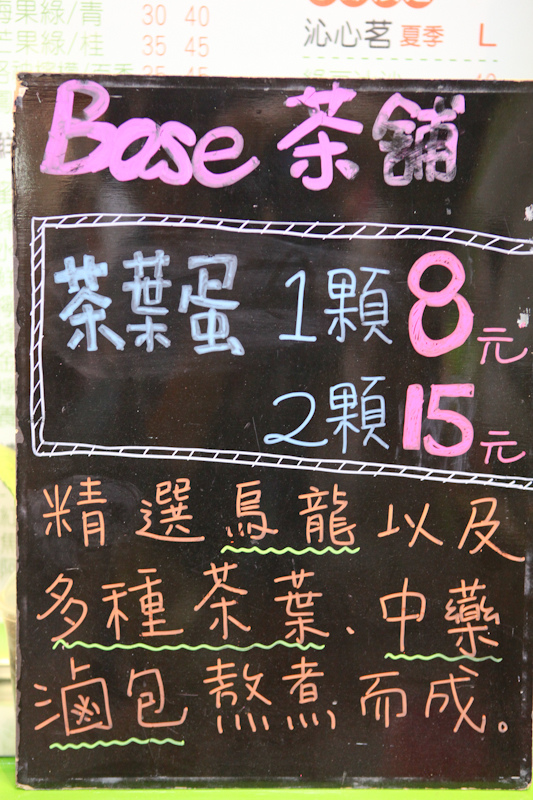 梅果綠/青 30 40
芒果綠/桂 35 45
沁心茗 夏季 L
Bose 茶舖
茶葉蛋 1顆 8元
2顆 15元
精選烏龍以及
多種茶葉、中藥
滷包熬煮而成。